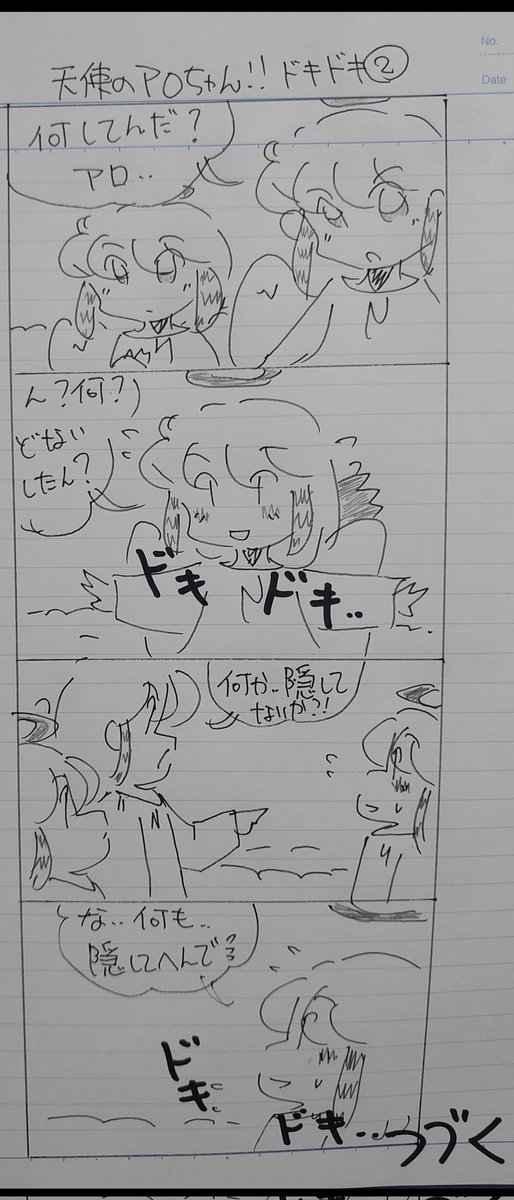 No.
Date
天使のアロちゃん!! ドキドキ②
何してんだ?
アロ..
ん?何?
どない
したん?
ドキ ドキ..
何か..隠して
ないか?!
な..何も..
隠してへんで
ドキ
ドキ..
つづく